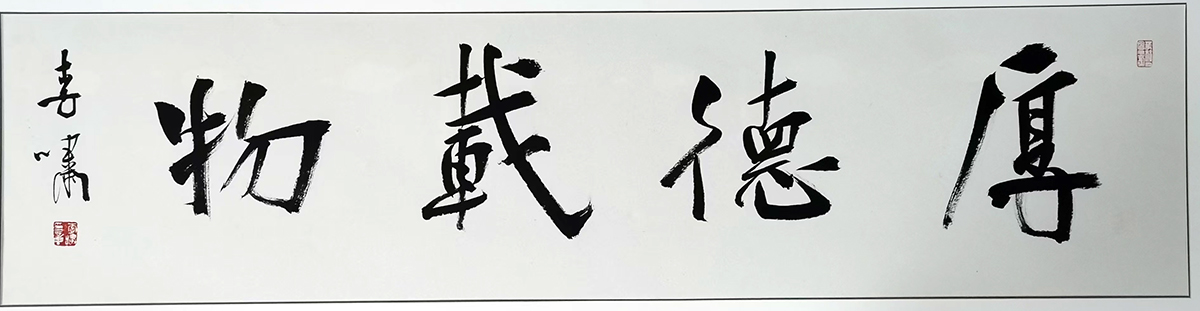 厚德載物
李嘯